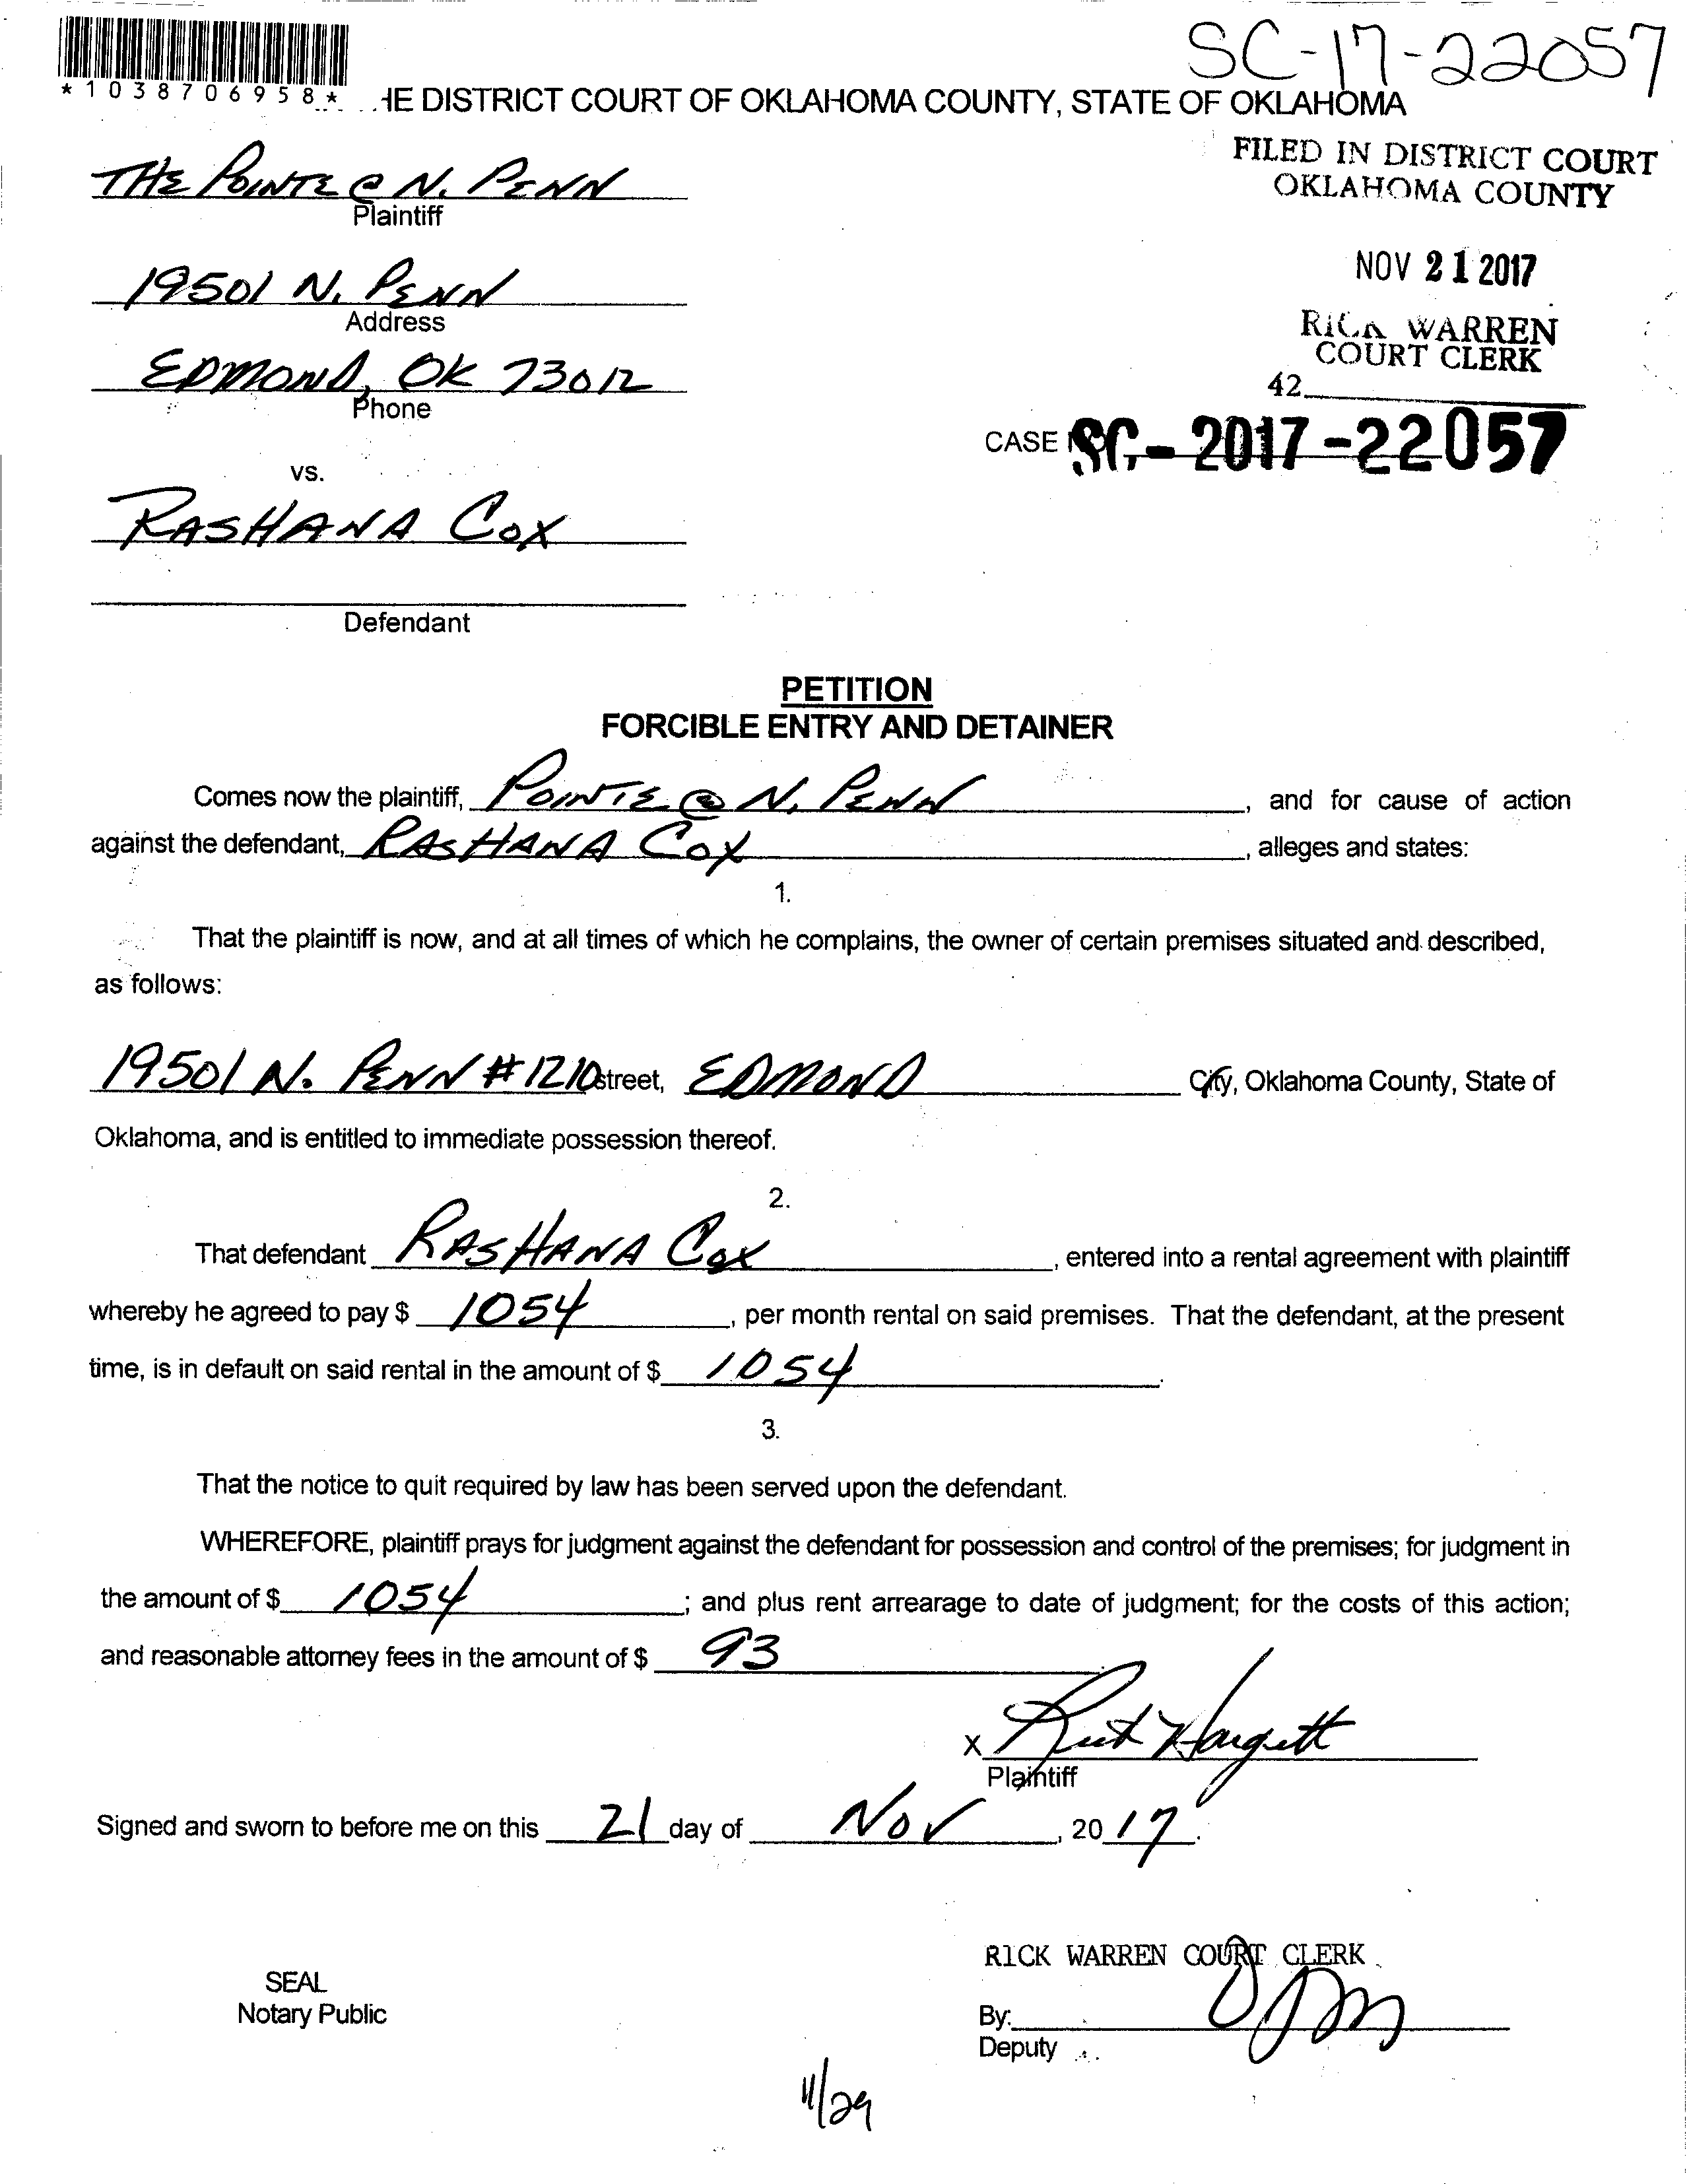 SC-17-22057
*1038706958*
HE DISTRICT COURT OF OKLAHOMA COUNTY, STATE OF OKLAHOMA
FILED IN DISTRICT COURT
OKLAHOMA COUNTY
THE POINTE @ N. PENN
Plaintiff
NOV 21 2017
19501 N. PENN
Address
RICK WARREN
COURT CLERK
EDMOND, OK 73012
Phone
42
CASE NO. SC-2017-22057
vs.
RASHANA COX
Defendant
PETITION
FORCIBLE ENTRY AND DETAINER
Comes now the plaintiff, POINTE @ N. PENN, and for cause of action
against the defendant, RASHANA COX, alleges and states:
1.
That the plaintiff is now, and at all times of which he complains, the owner of certain premises situated and described,
as follows:
19501 N. PENN #1210 street, EDMOND City, Oklahoma County, State of
Oklahoma, and is entitled to immediate possession thereof.
2.
That defendant RASHANA COX, entered into a rental agreement with plaintiff
whereby he agreed to pay $ 1054, per month rental on said premises. That the defendant, at the present
time, is in default on said rental in the amount of $ 1054.
3.
That the notice to quit required by law has been served upon the defendant.
WHEREFORE, plaintiff prays for judgment against the defendant for possession and control of the premises; for judgment in
the amount of $ 1054; and plus rent arrearage to date of judgment; for the costs of this action;
and reasonable attorney fees in the amount of $ 93
X
Plaintiff
Signed and sworn to before me on this 21 day of Nov, 2017.
RICK WARREN COURT CLERK
SEAL
Notary Public
By:
Deputy
11/29